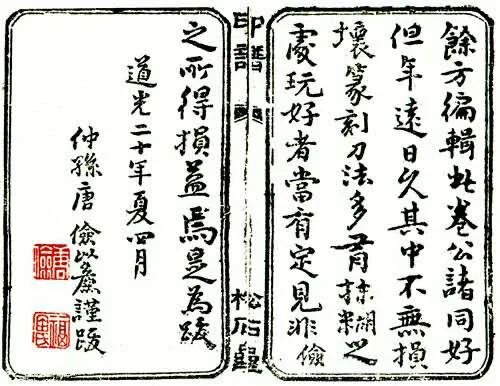 餘方編輯此卷公諸同好
但年遠日久其中不無損
壞篆刻刀法多有糊之
處玩好者當有定見非儉
印譜
松石齋
之所得損益焉是為跋
道光二十年夏四月
仲孫唐儉以廉謹跋
唐儉